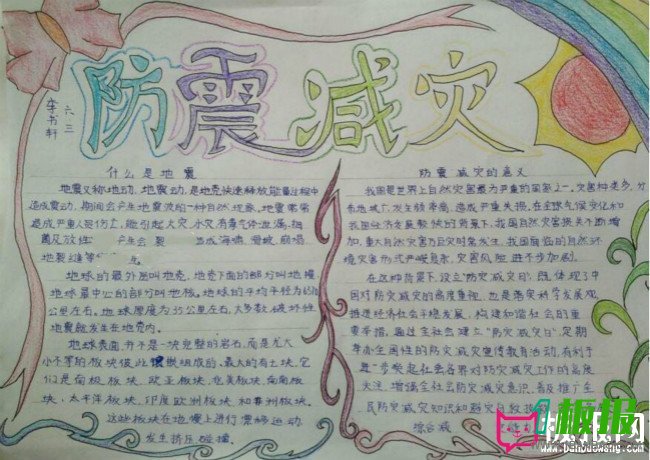 防震减灾
六三
李书轩
什么是地震
地震又称地动、地震动,是地壳快速释放能量过程中
造成震动,期间会产生地震波的一种自然现象。地震常常
造成严重人员伤亡,能引起火灾、水灾、有毒气体泄漏、细
菌及放性 产生会 裂 造成海啸、滑坡、崩塌、
地裂缝等
地球的最外层叫地壳,地壳下面的部分叫地幔
地球最中心的部分叫地核。地球的平均半径为
公里左右。地球厚度为35公里左右,大多数破坏性
地震就发生在地壳内。
地球表面并不是一块完整的岩石,而是尤大
小不等的板块彼此镶嵌组成的,最大的有七块,它
们是南极板块、欧亚板块、北美板块、南南板
块、太平洋板块、印度欧洲板块和非洲板块。
这些板块在地幔上进行漂移运动
发生挤压碰撞。
防震减灾的意义
我国是世界上自然灾害最为严重的国家之一。灾害种类多,分
布地域广,发生频率高,造成严重失损。在全球气候变化和
我国经济发展較快的背景下,我国自然灾害损失不断增
加,重大自然灾害乃巨灾时常发生,我国面临的自然环
境灾害形式严峻复杂,灾害风险进一步加剧。
在这种背景下,设立"防灾减灾日",既体现了中
国对防灾减灾的高度重视,也是落实科学发展观,
推进经济社会平稳发展,构建和谐社会的重
要举措。通过全社会建立"防灾减灾日",定期
举办全国性的防灾减灾宣传教育活动,有利于
进一步唤起社会各界对防灾减灾工作的高度
关注,增强全社会防灾减灾意识,普及推广全
民防灾减灾知识和避灾自救技能
综合减
1板报网
www.banbaowang.com